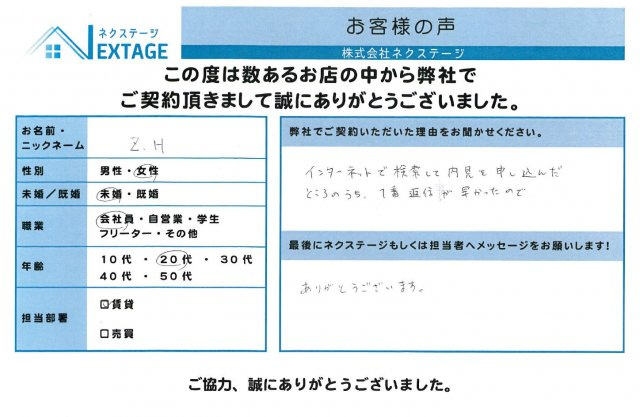 ネクステージ
NEXTAGE
お客様の声
株式会社ネクステージ
この度は数あるお店の中から弊社で
ご契約頂きまして誠にありがとうございました。
お名前・
ニックネーム
Z.H
性別
男性・女性
未婚/既婚
未婚・既婚
職業
会社員・自営業・学生
フリーター・その他
年齢
10代・20代・30代
40代・50代
担当部署
賃貸
売買
弊社でご契約いただいた理由をお聞かせください。
インターネットで検索して内見を申し込んだ
ところのうち、1番返信が早かったので
最後にネクステージもしくは担当者へメッセージをお願いします!
ありがとうございます。
ご協力、誠にありがとうございました。